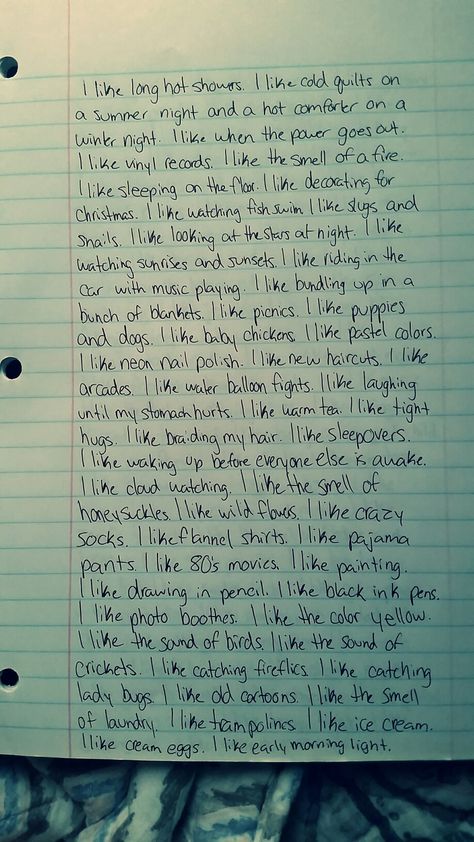 I like long hot showers. I like cold quilts on
a summer night and a hot comforter on a
winter night. I like when the power goes out.
I like vinyl records. I like the smell of a fire.
I like sleeping on the floor. I like decorating for
Christmas. I like watching fish swim I like slugs and
snails. I like looking at the stars at night. I like
watching sunrises and sunsets. I like riding in the
car with music playing. I like bundling up in a
bunch of blankets. I like picnics. I like puppies
and dogs. I like baby chickens. I like pastel colors.
I like neon nail polish. I like new haircuts. I like
arcades. I like water balloon fights. I like laughing
until my stomach hurts. I like warm tea. I like tight
hugs. I like braiding my hair. I like sleepovers.
I like waking up before everyone else is awake.
I like cloud watching. I like the smell of
honeysuckles. I like wild flowers. I like crazy
socks. I like flannel shirts. I like pajama
pants. I like 80's movies. I like painting.
I like drawing in pencil. I like black ink pens.
I like photo boothes. I like the color yellow.
I like the sound of birds. I like the sound of
crickets. I like catching fireflies. I like catching
lady bugs. I like old cartoons. I like the smell
of laundry. I like trampolines. I like ice cream.
I like cream eggs. I like early morning light.